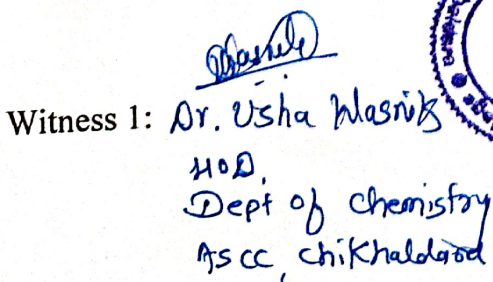 Witness 1: Dr. Usha Wasnik
HOD,
Dept of Chemistry
ASCC, Chikhaldara